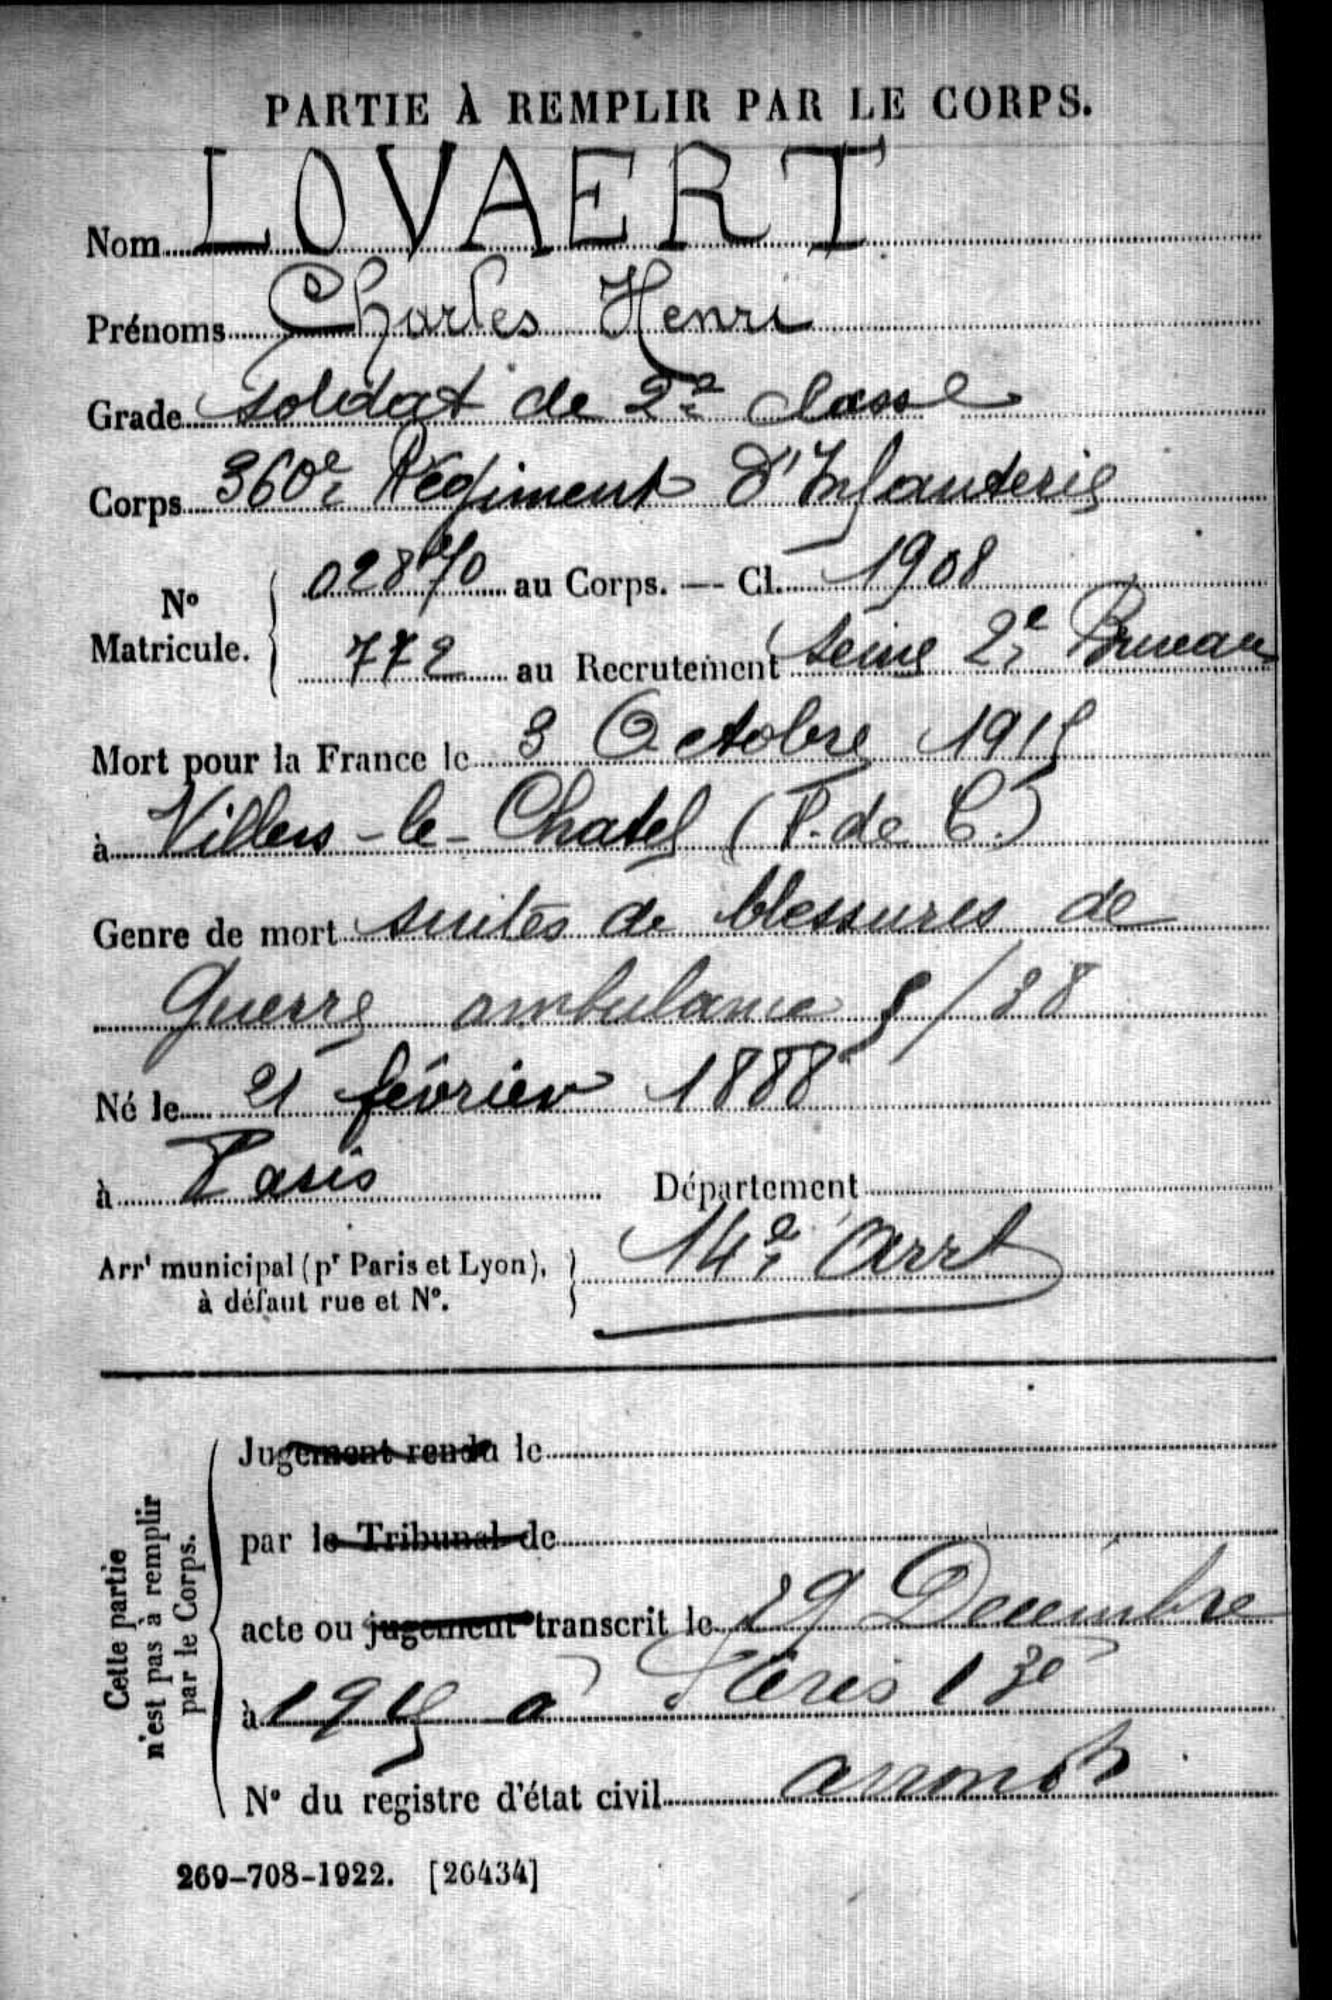 PARTIE À REMPLIR PAR LE CORPS.
Nom LOVAERT
Prénoms Charles Henri
Grade Soldat de 2e classe
Corps 360e Régiment d'Infanterie
N° Matricule. 02870 au Corps. — Cl. 1908
772 au Recrutement Seine 2e Bureau
Mort pour la France le 3 Octobre 1915
à Villers-le-Chatel (P. de C.)
Genre de mort suites de blessures de
Guerre ambulance 5/38
Né le 21 février 1888
à Paris Département
Arrt municipal (pr Paris et Lyon), à défaut rue et N°. 14e arrt
Cette partie n'est pas à remplir par le Corps.
Jugement rendu le
par le Tribunal de
acte ou jugement transcrit le 29 Decembre
à 1915 a Paris 13e
N° du registre d'état civil arrondt
269-708-1922. [26434]